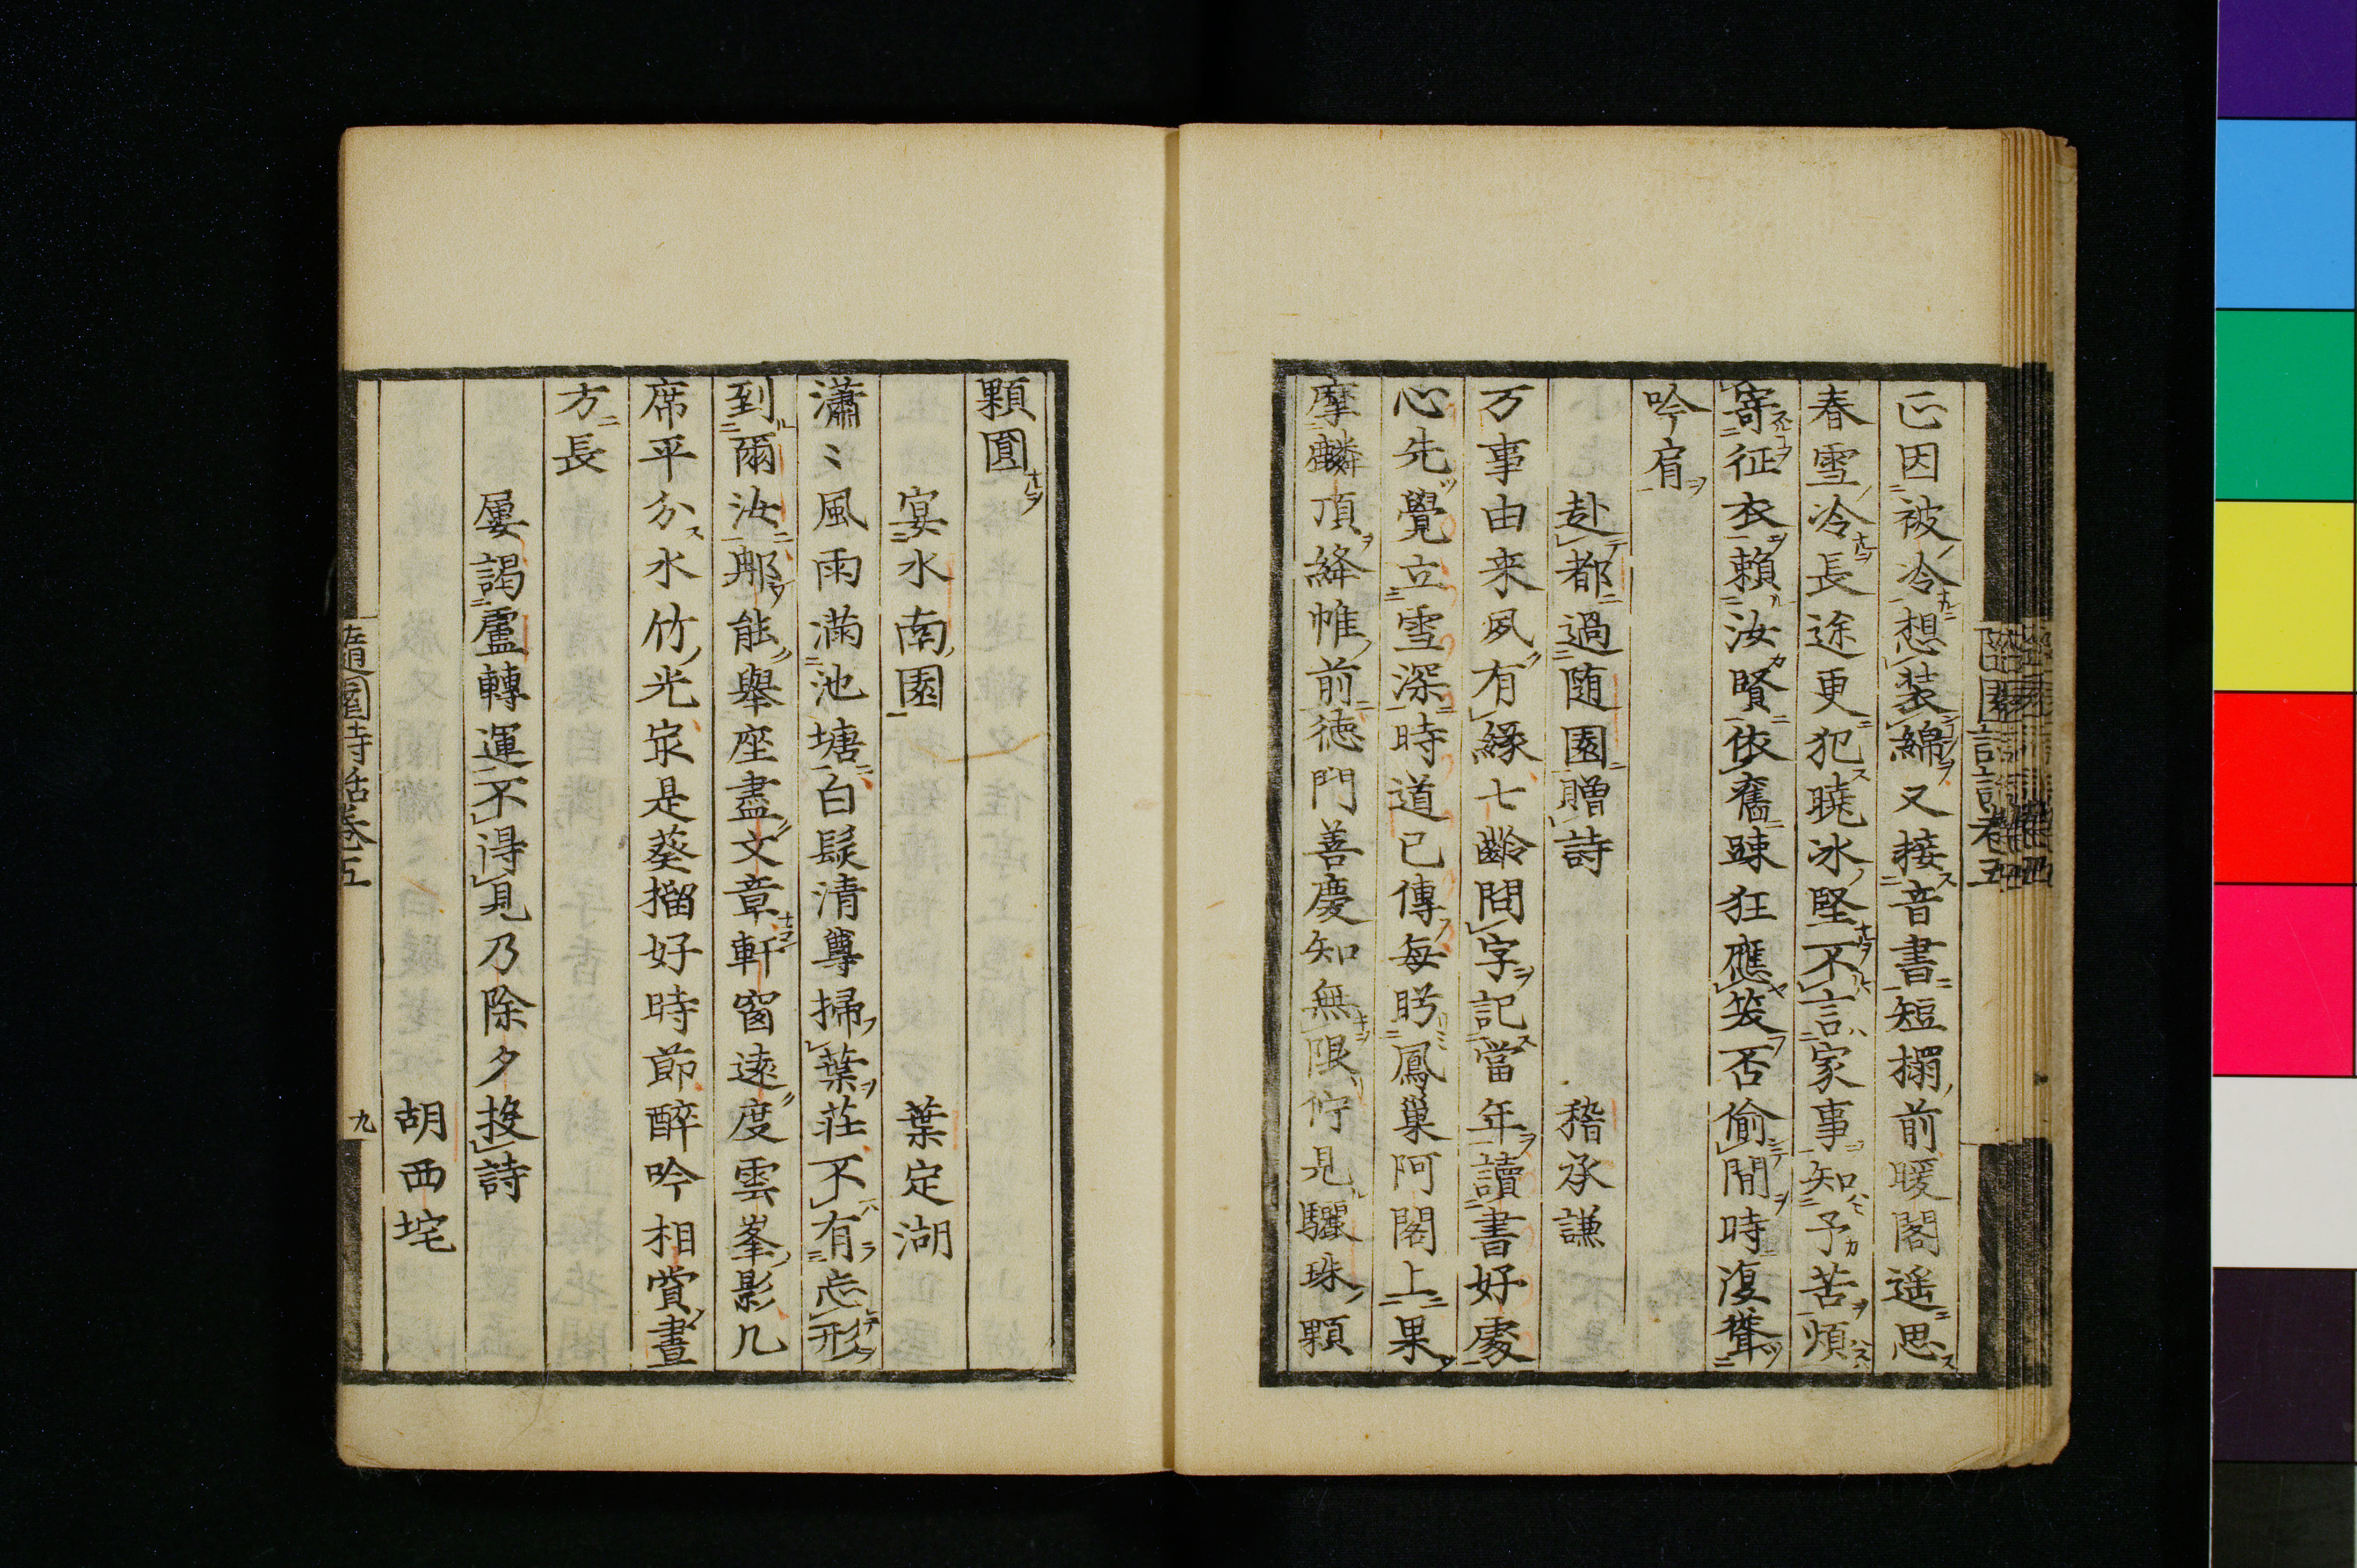 正因被冷想装綿又接音書短搨前暖閣遥思
春雪冷長途更犯曉冰堅不言家事知予苦煩
寄征衣頼汝賢依舊踈狂應笑否偷閒時復聳
吟肩
赴都過随園贈詩 稽承謙
万事由来夙有縁七齡問字記當年讀書好處
心先覺立雪深時道已傳每盻鳳巢阿閣上果
摩麟頂絳帷前徳門善慶知無限佇見驪珠顆
顆圓
宴水南園 葉定湖
瀟〻風雨滿池塘白髮清尊掃葉莊不有忘形
到爾汝那能舉座盡文章軒窗遠度雲峯影几
席平分水竹光㝡是葵榴好時節醉吟相賞晝
方長
屢謁盧轉運不得見乃除夕投詩
胡西垞
隨園詩話卷五 九